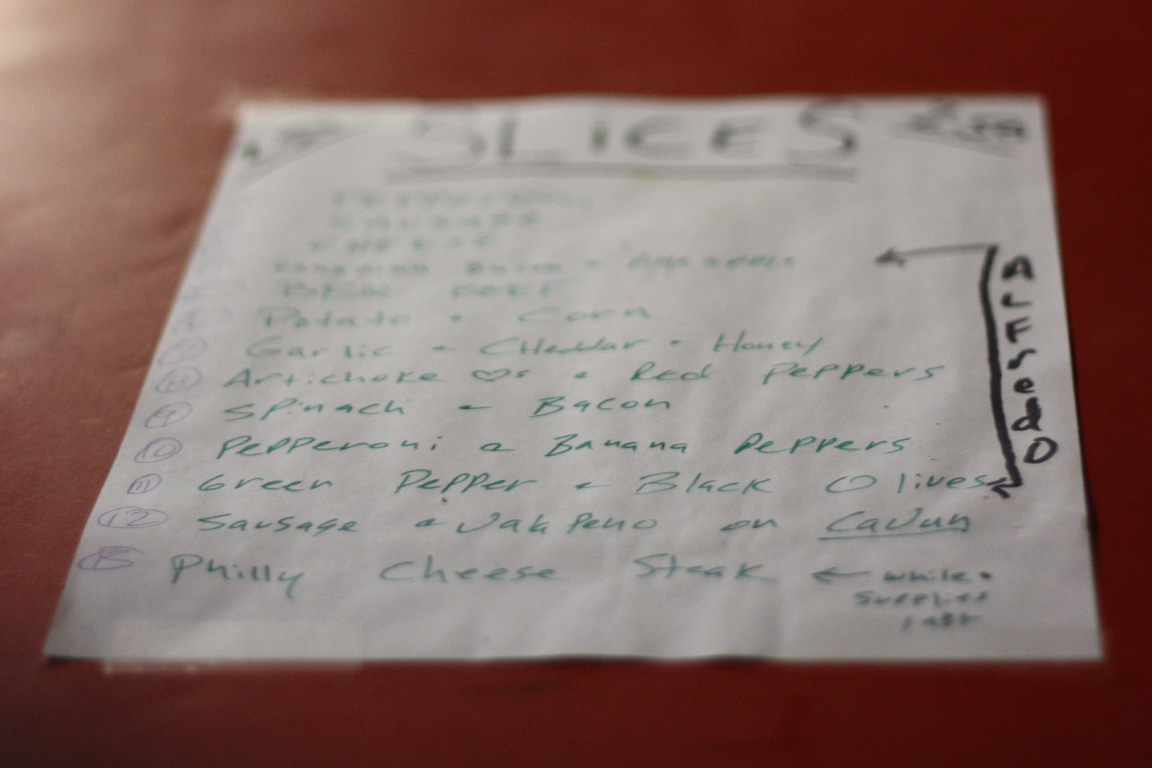 SLICES
PEPPERONI
SAUSAGE
CHEESE
Canadian Bacon
Potato & Corn
7 Garlic & CHeddar & Honey
8 Artichoke ♡s & Red Peppers
9 Spinach & Bacon
10 Pepperoni & Banana Peppers
11 Green Pepper & Black Olives
12 Sausage & Jalapeno on Cajun
Philly Cheese Steak ← while
supplies
last
ALFredo